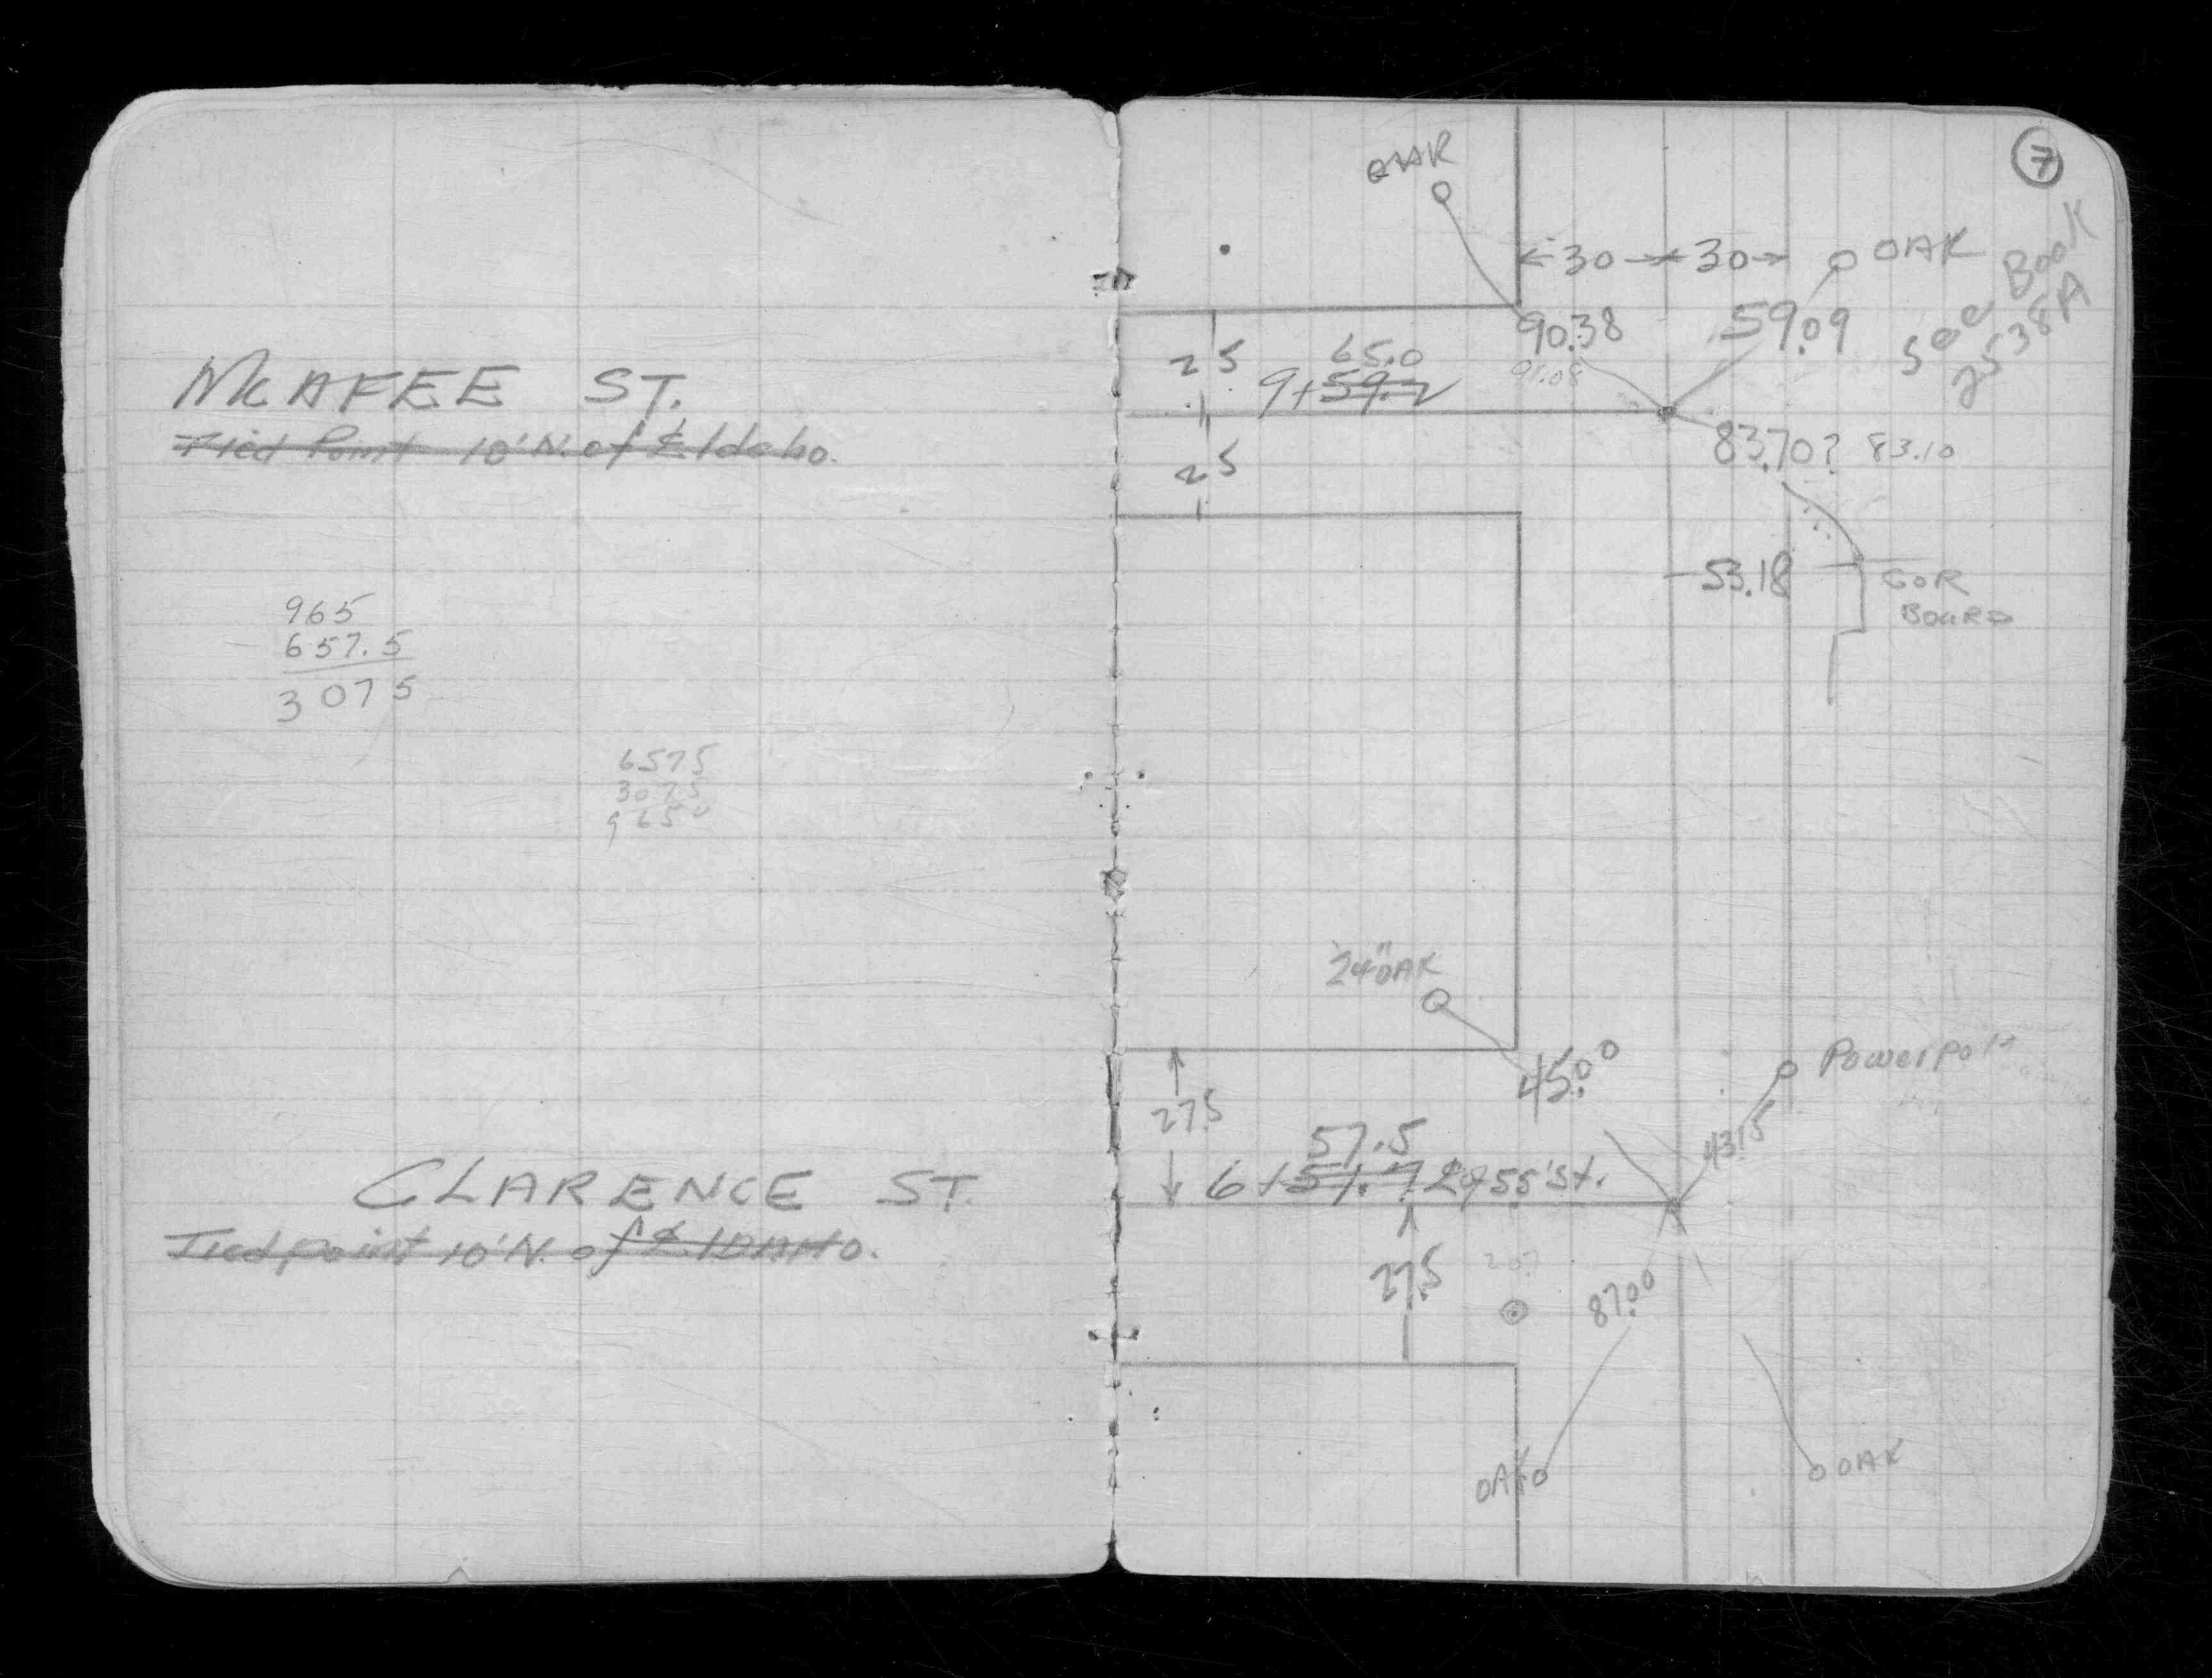 McAFEE ST.
Tied Point 10' N. of ℄ Idaho.
965
657.5
3075
6575
3075
9650
CLARENCE ST.
Tied point 10' N. of ℄ IDAHO.
7
OAK
←30→←30→ OAK
See Book
2538A
90.38
59.09
25
65.0
9+59.2
91.08
83.70? 83.10
25
53.18
COR
BOARD
24" OAK
45.00
Powerpole
27.5
43.15
57.5
6+51.7 ℄ of 55' St.
27.5
20.7
87.00
OAK
OAK